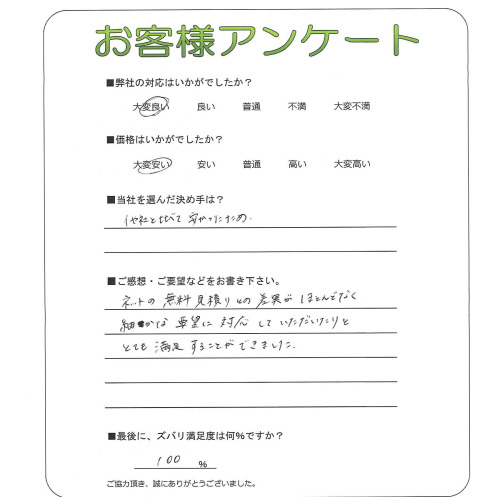 お客様アンケート
■弊社の対応はいかがでしたか?
大変良い 良い 普通 不満 大変不満
■価格はいかがでしたか?
大変安い 安い 普通 高い 大変高い
■当社を選んだ決め手は?
他社と比べて安かったため.
■ご感想・ご要望などをお書き下さい。
ネットの無料見積りの差異がほとんどなく
細かな要望に対応していただいたりと
とても満足することができました.
■最後に、ズバリ満足度は何%ですか?
100 %
ご協力頂き、誠にありがとうございました。